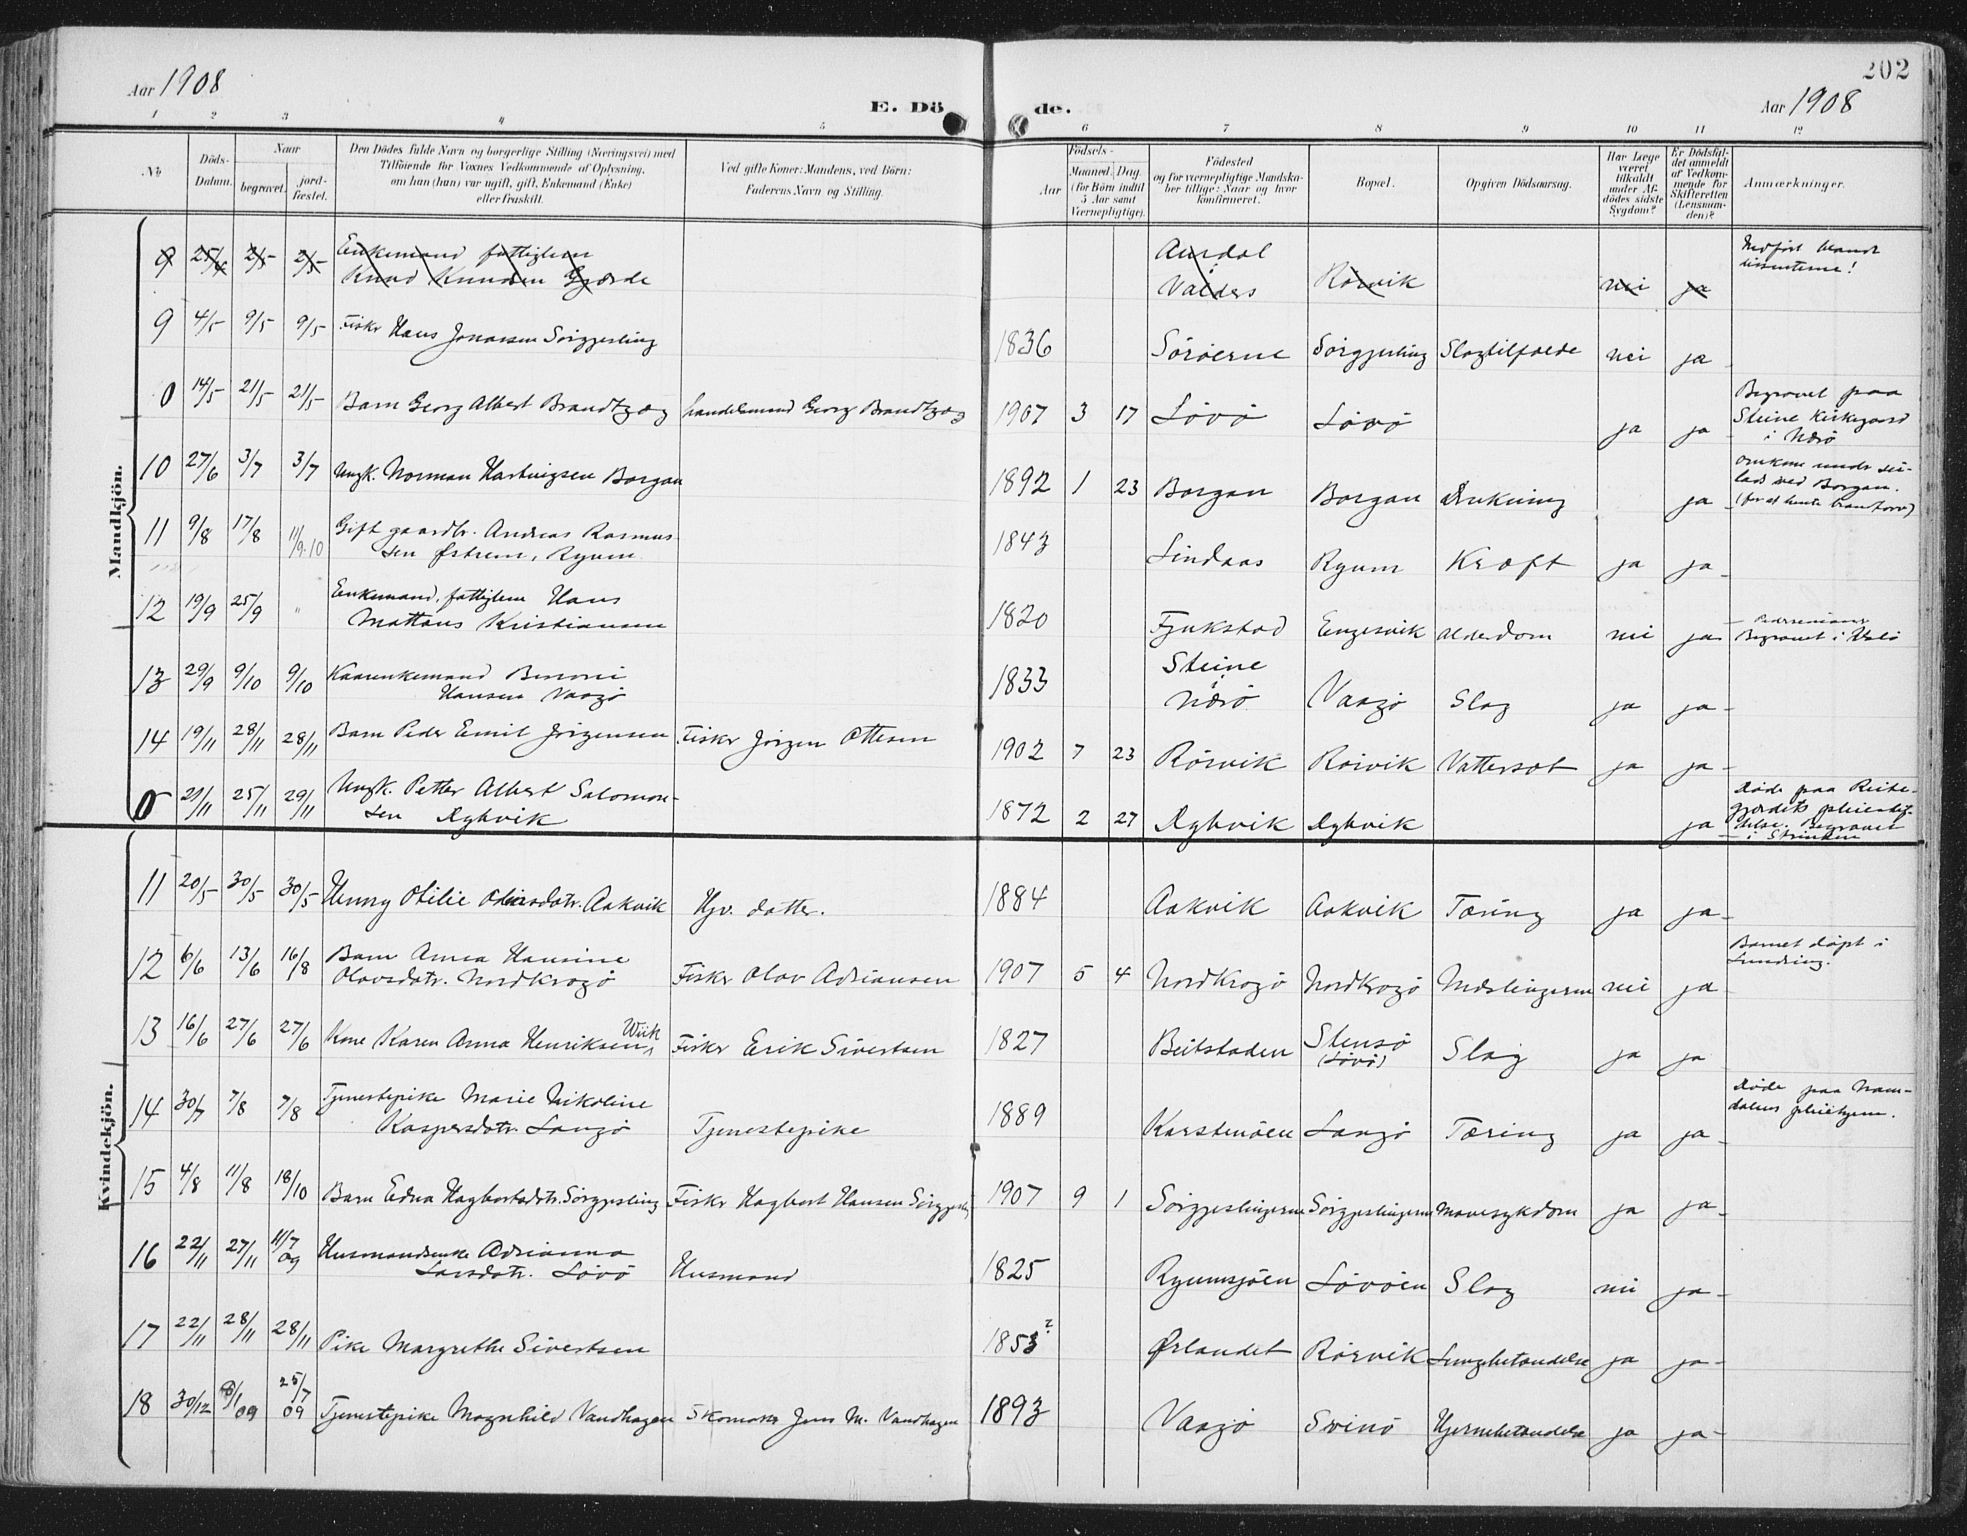 202
Aar 1908
E. Dö de.
Aar 1908
1 2 3 4 5 6 7 8 9 10 11 12
No
Döds-
Datum.
Naar
begravet.
jord-
fæstet.
Den Dödes fulde Navn og borgerlige Stilling (Næringsvei) med
Tilföiende for Voxnes Vedkommende af Oplysning,
om han (hun) var ugift, gift, Enkemand (Enke)
eller fraskilt.
Ved gifte Koner: Mandens, ved Börn:
Faderens Navn og Stilling.
Födsels-
Aar
Maaned. Dag.
(for Börn indtil
5 Aar samt
Værnepligtige).
Födested
og for værnepligtige Mandska-
ber tillige: Naar og hvor
konfirmeret.
Bopæl.
Opgiven Dödsaarsag.
Har Læge
været
tilkaldt
under Af-
dödes sidste
Sygdom?
Er Dödsfal-
det anmeldt
af Vedkom-
mende for
Skifteretten
(Lensman-
den)?
Anmærkninger.
Mandkjön.
9 25/4 2/5 2/5 Enkemand fattiglem
Knud Knudsen Gjærde
Aurdal
i
Valders
Rörvik nei ja
Indført blandt
dissenterne!
9 4/5 9/5 9/5 Fisker Hans Jonassen Sörgjesling 1836 Söröerne Sörgjesling Slagtilfælde nei ja
0 14/5 21/5 21/5 Barn Georg Albert Brandtzæg handelsmand Georg Brandtzæg 1907 3 17 Lövö Lövö ja ja
Begravet paa
Steine Kirkegaard
i Nærö
10 27/6 3/7 3/7 Ungk. Norman Hartvigsen Borgan 1892 1 23 Borgan Borgan Drukning ja
omkom under sei-
lads ved Borgan.
11 9/8 17/8 11/9.10 Gift gaardbr. Andreas Rasmus-
sen Østrem, Ryum 1843 Lindaas Ryum Kræft ja ja
12 19/9 25/9 " Enkemand, fattiglem Hans
Mattæus Kristiansen 1820 Fjukstad Engesvik alderdom nei ja
Begravet i
13 29/9 9/10 9/10 Kaarenkemand Benoni
Hansen Vaagö 1833 Steine
i
Nærö
Vaagö Slag ja ja
14 19/11 28/11 28/11 Barn Peder Emil Jörgensen Fisker Jörgen Ottesen 1902 7 23 Rörvik Rörvik Vattersot ja ja
0 21/11 25/11 29/11 Ungk. Petter Albert Salomon-
sen Dybvik 1872 2 27 Dybvik Dybvik ja
döde paa Reite-
gjærdets pleiestif-
telse. Begravet
i Strinden
Kvindekjön.
11 20/5 30/5 30/5 Henny Otilie Aakvik Hjv. datter. 1884 Aakvik Aakvik Tæring ja ja
12 6/6 13/6 16/8 Barn Anna Hansine
Olavsdatr. Nordkrogö Fisker Olav Adriansen 1907 5 4 Nordkrogö Nordkrogö Mæslingerne nei ja
Barnet döpt i
13 16/6 27/6 27/6 Kone Karen Anna Henriksen, Wiik Fisker Erik Sivertsen 1827 Beitstaden Stensö
(Lövö) Slag ja ja
14 30/7 7/8 7/8 Tjenestepike Marie Nikoline
Kaspersdatr. Langö Tjenestepike 1889 Karstenöen Langö Tæring ja ja
döde paa Nam-
dalens pleiehjem.
15 4/8 11/8 18/10 Barn Edna Hagbartsdatr. Sörgjesling Fisker Hagbart Hansen Sörgjesling 1907 9 1 Sörgjeslingerne Sörgjeslingerne Mavesykdom ja ja
16 22/11 27/11 11/7 09 Husmandsenke Adrianna
Larsdatr. Lövö Husmand 1825 Ryumsjöen Lövöen Slag nei ja
17 22/11 28/11 28/11 Pike Margrethe Sivertsen 1853? Ørlandet Rörvik Lungebetændelse ja ja
18 30/12 8/1 09 25/7 09 Tjenestepike Magnhild Vandhagen Skomaker Jens M. Vandhagen 1893 Vaagö Svinö Hjernebetændelse ja ja